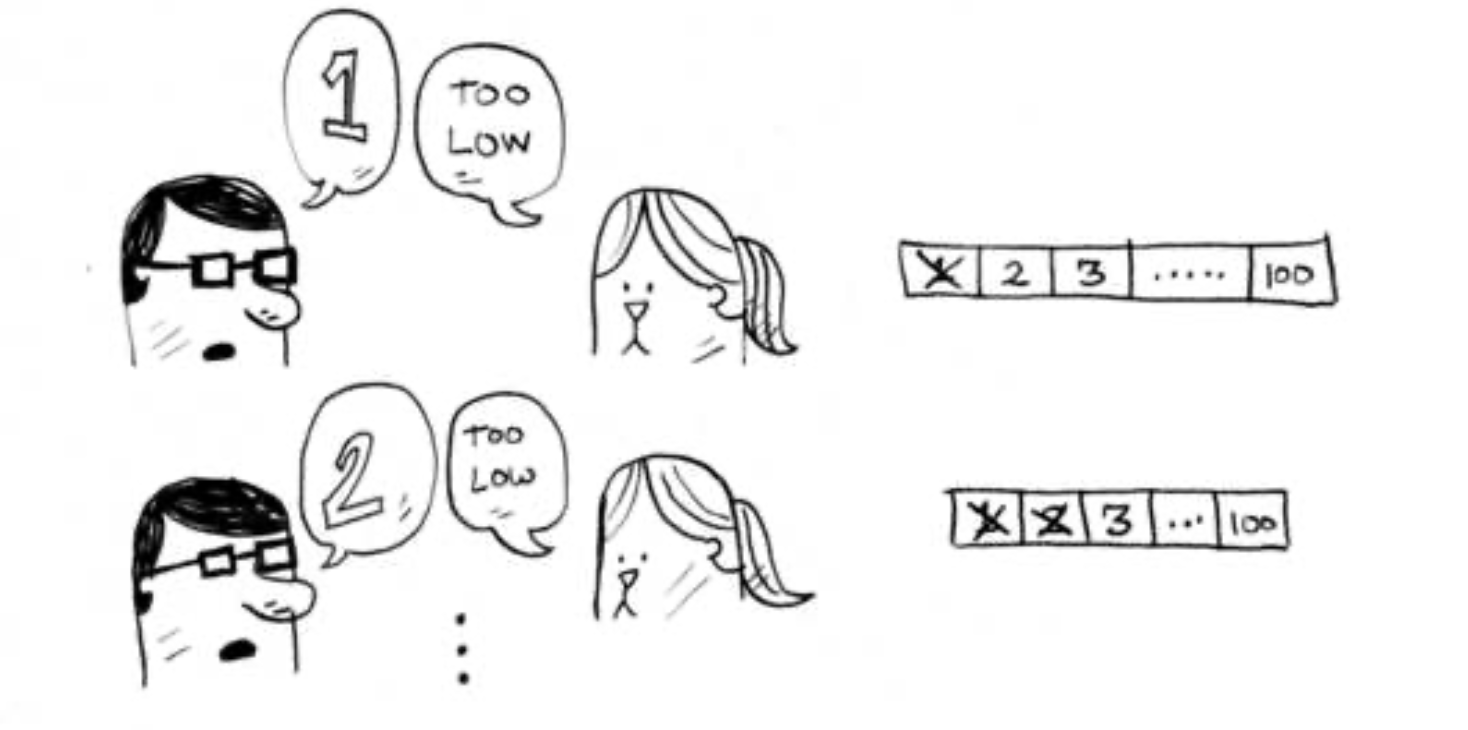 1
TOO
LOW
1 2 3 ..... 100
2
TOO
LOW
1 2 3 ... 100